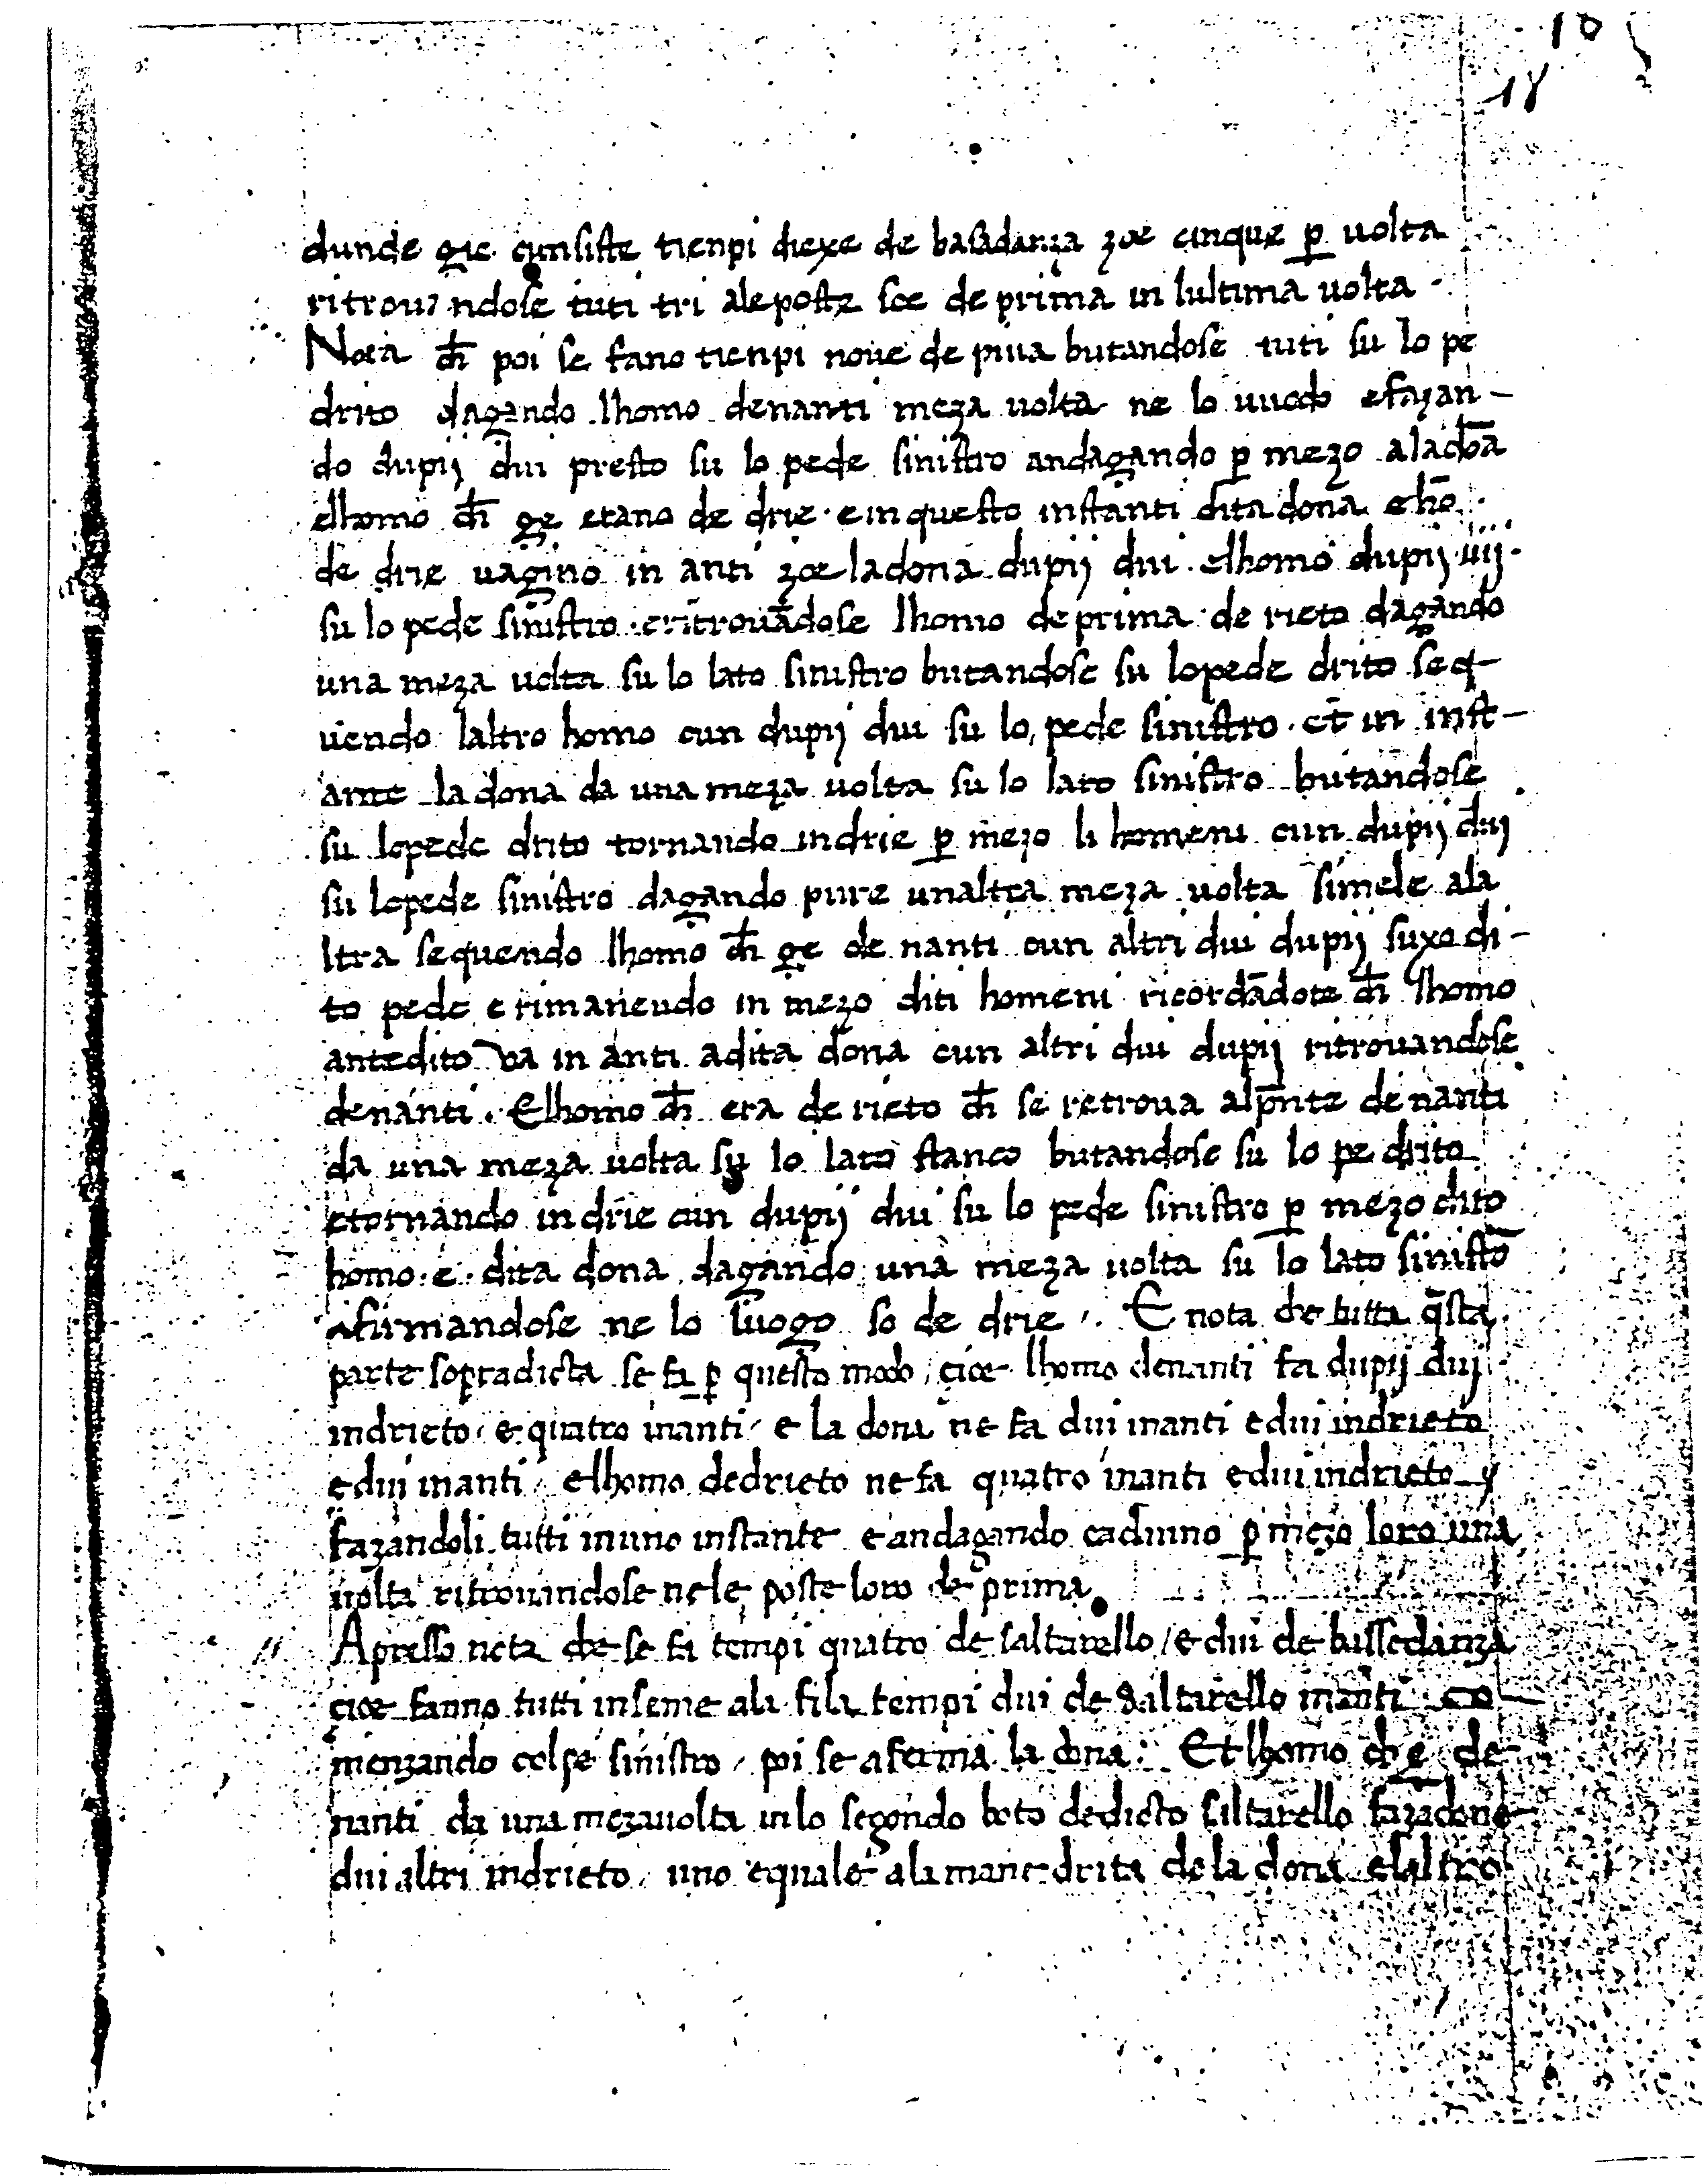 18
18
dunde gie cunsiste tienpi diexe de basadanza zoe cinque ꝑ uolta
ritrouandose tuti tri ale poste soe de prima in lultima uolta ·
Nota ch̄ poi se fano tienpi noue de piua butandose tuti su lo pe
drito dagando lhomo denanti meza uolta ne lo uuodo e fazan-
do dupij dui presto su lo pede sinistro andagando ꝑ mezo a la dōa
elhomo ch̄ ge erano de drie · e in questo instanti dita dona e hō
de drie uagino in anti zoe la dona dupij dui · elhomo dupij iiij ·
su lo pede sinistro · e ritrouādose lhomo de prima · de rieto dagando
una meza uolta su lo lato sinistro butandose su lo pede drito seq-
uendo laltro homo cun dupij dui su lo pede sinistro · et in inst-
ante la dona da una meza uolta su lo lato sinistro butandose
su lo pede drito tornando indrie ꝑ mezo li homeni cun dupij dui
su lo pede sinistro dagando pure unaltra meza uolta simele ala
ltra sequendo lhomo ch̄ ge de nanti cun altri dui dupij suxo di-
to pede e rimanendo in mezo diti homeni ricordādote ch̄ lhomo
antedito va in anti a dita dona cun altri dui dupij ritrouandose
denanti · Elhomo ch̄ era de rieto ch̄ se retroua al pn̄te de nanti
da una meza uolta su lo lato stanco butandose su lo pe drito
e tornando in drie cun dupij dui su lo pede sinistro ꝑ mezo dito
homo · e · dita dona dagando una meza uolta su lo lato sinistō
afirmandose ne lo luogo so de drie ·. E nota che tutta q̄sta
parte sopradicta se fa ꝑ questo modo, cioe lhomo denanti fa dupij duj
indrieto / e quatro inanti / e la dona ne fa dui inanti e dui indrieto
e dui inanti / elhomo dedrieto ne fa quatro inanti e dui indrieto y
fazandoli tutti in uno instante e andagando caduino ꝑ mezo loro una
uolta ritrouandose ne le poste loro de prima.
// Apresso nota che se fa tempi quatro de saltarello / e dui de bassedanza
cioe fanno tutti inseme ala fila tempi dui de saltarello inanti co-
menzando col pe sinistro / poi se aferma la dona : Et lhomo ch e de-
nanti da una meza uolta in lo segondo boto de dicto saltarello fazādone
dui altri indrieto / uno equale a la mane drita de la dona e laltro